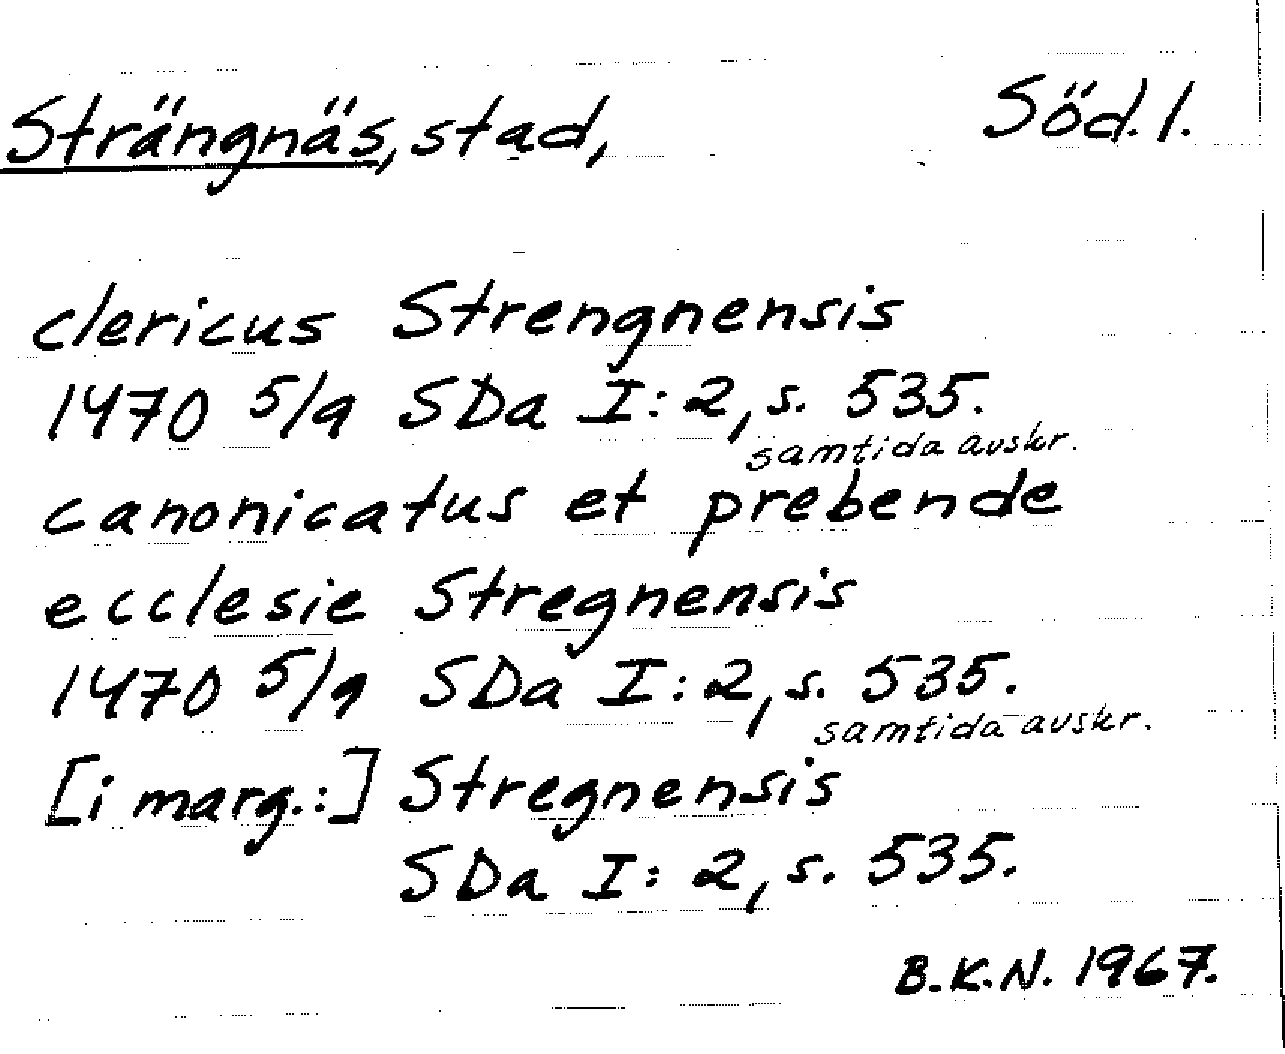 Strängnäs, stad, Söd. l.
clericus Strengnensis
1470 5/9 SDa I:2, s. 535.
samtida avskr.
canonicatus et prebende
ecclesie Stregnensis
1470 5/9 SDa I:2, s. 535.
samtida avskr.
[i marg.:] Stregnensis
SDa I:2, s. 535.
B.K.N. 1967.